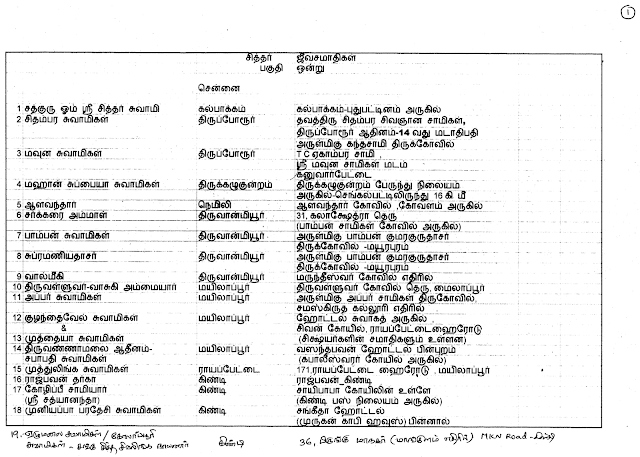 1
சித்தர் ஜீவசமாதிகள்
பகுதி ஒன்று
சென்னை
1 சத்குரு ஓம் ஸ்ரீ சித்தர் சுவாமி கல்பாக்கம் கல்பாக்கம்-புதுபட்டினம் அருகில்
2 சிதம்பர சுவாமிகள் திருப்போரூர் தவத்திரு சிதம்பர சிவஞான சாமிகள்,
திருப்போரூர் ஆதினம்-14 வது மடாதிபதி
அருள்மிகு கந்தசாமி திருக்கோவில்
3 மவுன சுவாமிகள் திருப்போரூர் T C ஏகாம்பர சாமி ,
ஸ்ரீ மவுன சாமிகள் மடம்
கனுவார்பேட்டை
4 மஹான் சுப்பையா சுவாமிகள் திருக்கழுகுன்றம் திருக்கழுகுன்றம் பேருந்து நிலையம்
அருகில்-செங்கல்பட்டிலிருந்து 16 கி மீ
5 ஆளவந்தார் நெமிலி ஆளவந்தார் கோவில் ,கோவளம் அருகில்
6 சர்க்கரை அம்மாள் திருவான்மியூர் 31, கலாக்ஷேத்ரா தெரு
(பாம்பன் சாமிகள் கோவில் அருகில்)
7 பாம்பன் சுவாமிகள் திருவான்மியூர் அருள்மிகு பாம்பன் குமரகுருதாசர்
திருக்கோவில் -மயூரபுரம்
8 சுப்ரமணியதாசர் திருவான்மியூர் அருள்மிகு பாம்பன் குமரகுருதாசர்
திருக்கோவில் -மயூரபுரம்
9 வால்மீகி திருவான்மியூர் மருந்தீஸ்வர் கோவில் எதிரில்
10 திருவள்ளுவர்-வாசுகி அம்மையார் மயிலாப்பூர் திருவள்ளுவர் கோவில் தெரு, மைலாப்பூர்
11 அப்பர் சுவாமிகள் மயிலாப்பூர் அருள்மிகு அப்பர் சாமிகள் திருகோவில்,
சமஸ்கிருத கல்லூரி எதிரில்
12 குழந்தைவேல் சுவாமிகள் மயிலாப்பூர் ஹோட்டல் சுவாகத் அருகில் ,
& சிவன் கோயில், ராயப்பேட்டைஹைரோடு
13 முத்தையா சுவாமிகள் (சிக்ஷ்யர்களின் சமாதிகளும் உள்ளன)
14 திருவண்ணாமலை ஆதீனம்- மயிலாப்பூர் வஸந்தபவன் ஹோட்டல் பின்புறம்
சபாபதி சுவாமிகள் (கபாலீஸ்வரர் கோயில் அருகில்)
15 முத்துலிங்க சுவாமிகள் ராயப்பேட்டை 171,ராயப்பேட்டை ஹைரோடு ,மயிலாப்பூர்
16 ராஜ்பவன் தர்கா கிண்டி ராஜ்பவன்,கிண்டி
17 கோழிப்பீ சாமியார் கிண்டி சாயிபாபா கோயிலின் உள்ளே
(ஸ்ரீ சத்யானந்தா) (கிண்டி பஸ் நிலையம் அருகில்)
18 முனியப்பா பரதேசி சுவாமிகள் கிண்டி சங்கீதா ஹோட்டல்
(முருகன் காபி ஹவுஸ்) பின்னால்
19. சுவாமிகள் / கிண்டி 36, MKN Road - கிண்டி
சுவாமிகள் -